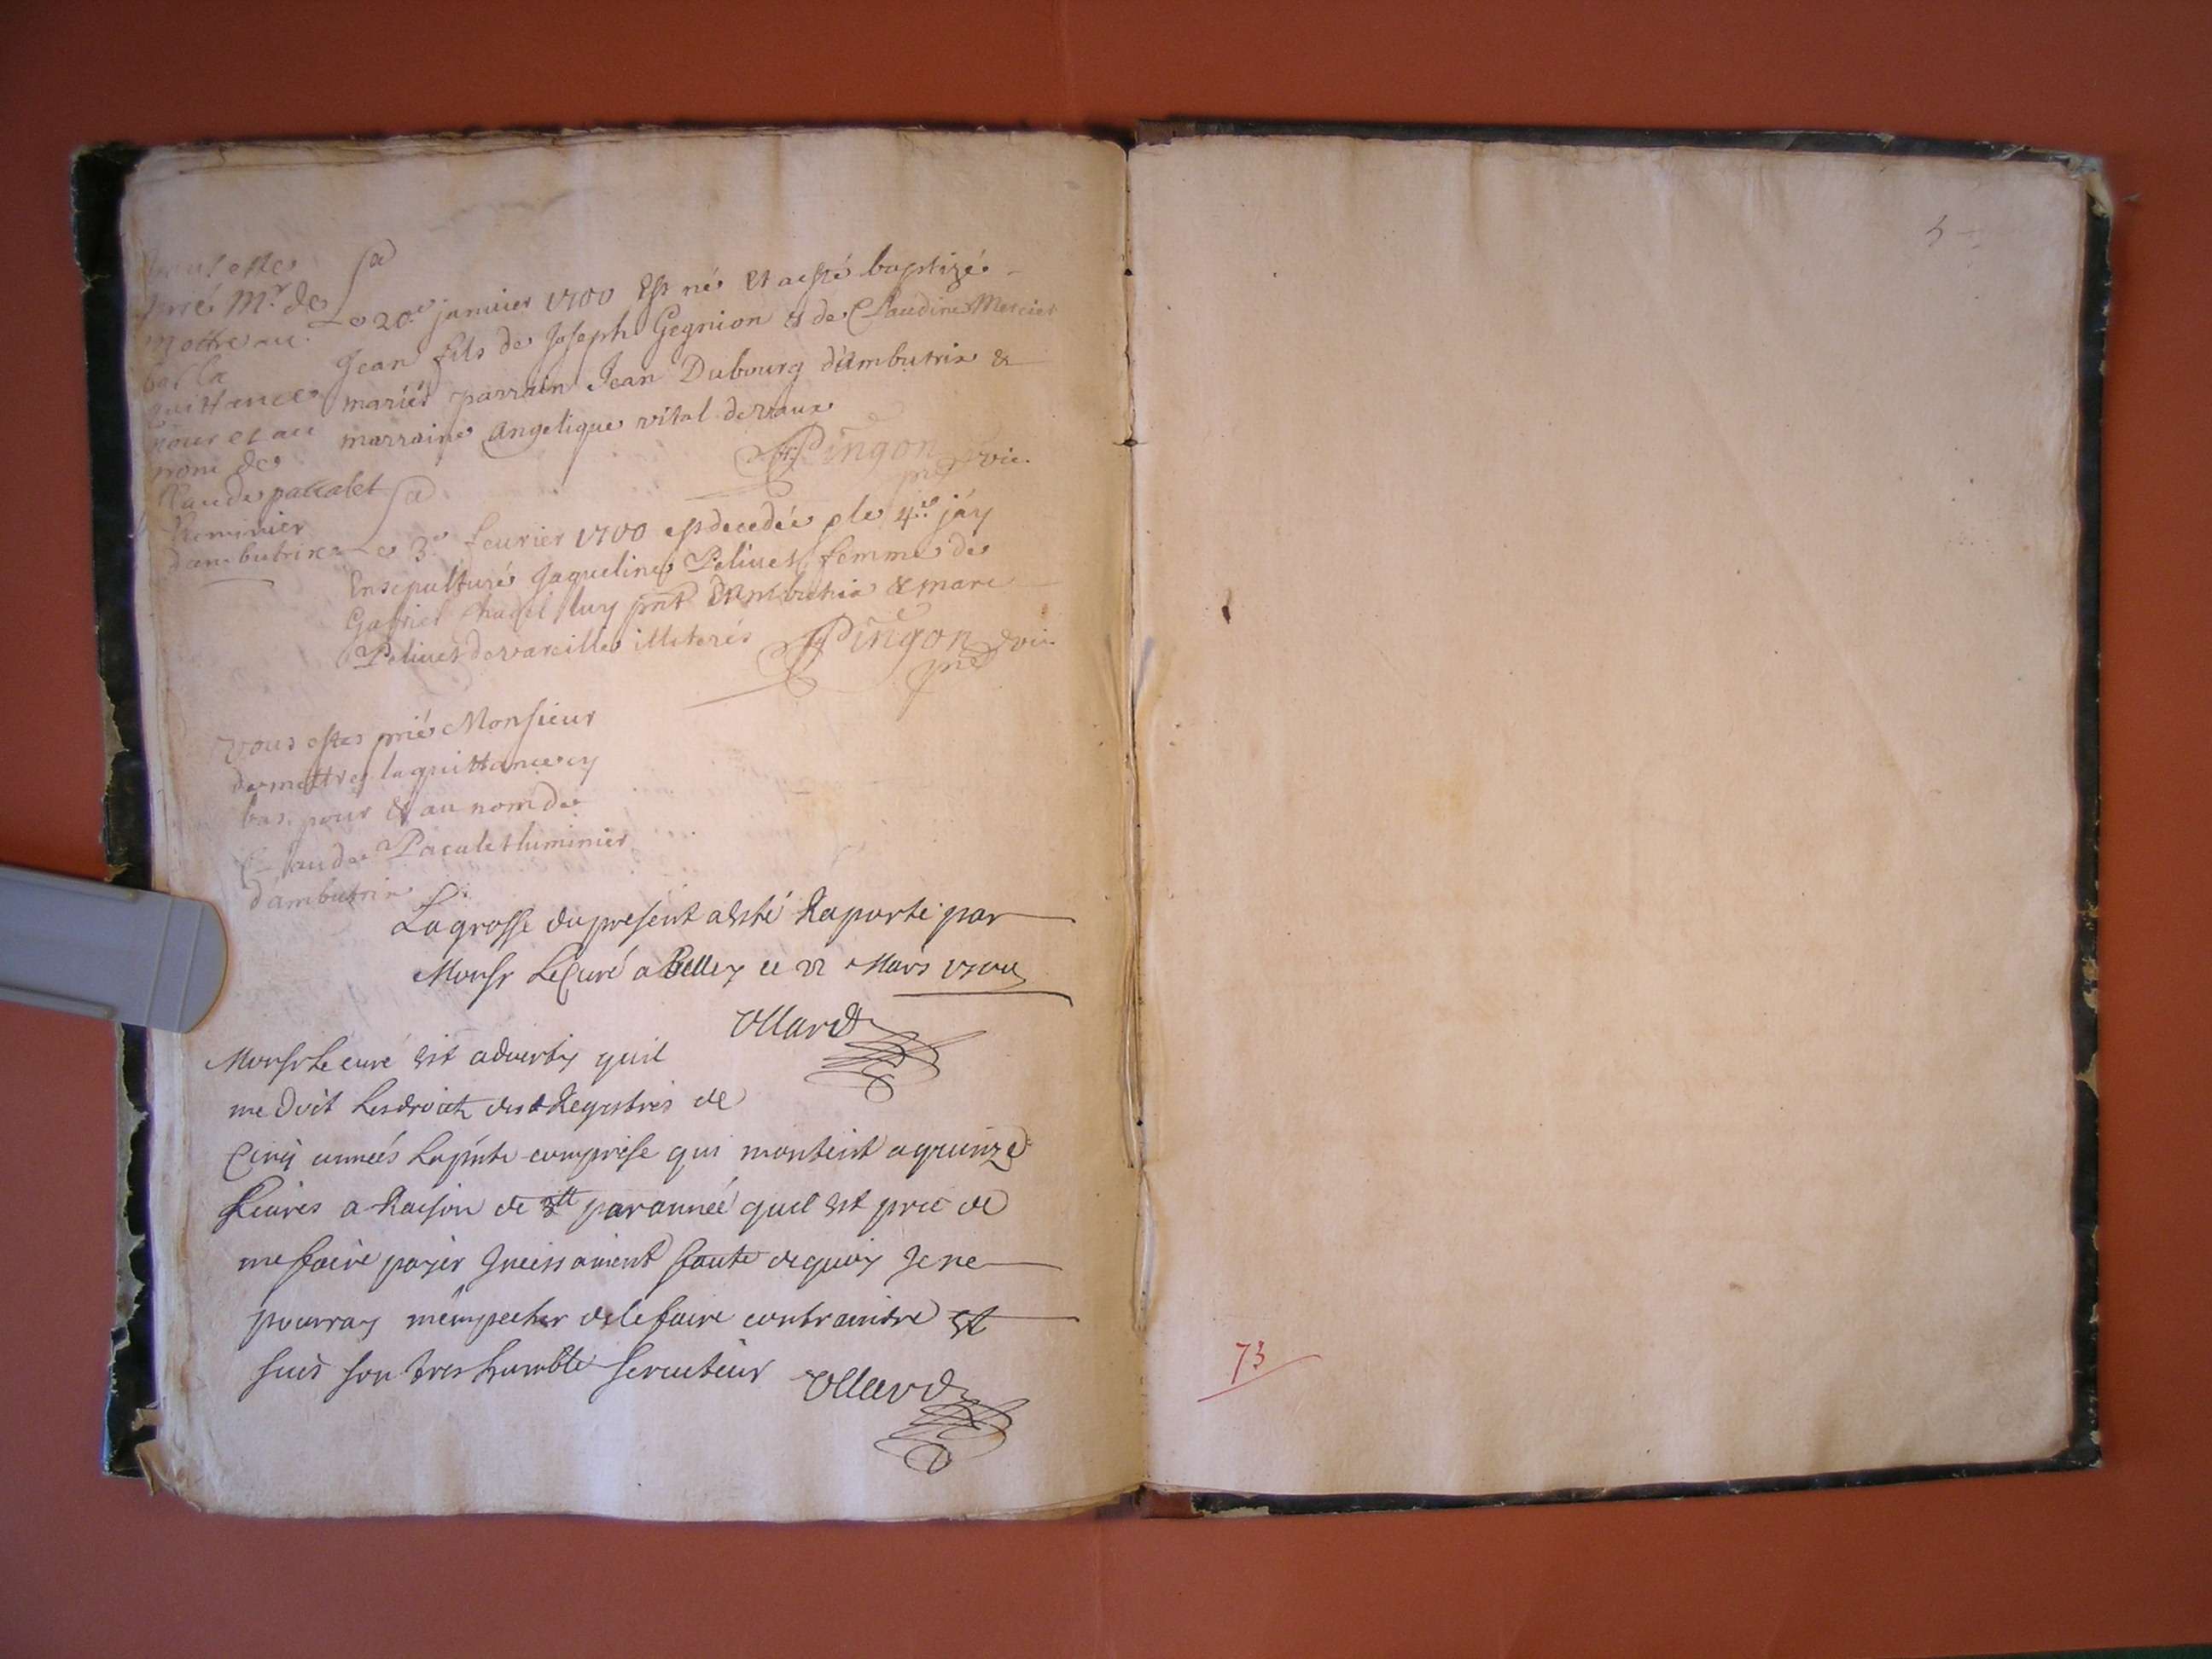 vous estes
prié Mr. de
mottre au
bas la
quittance
pour et au
nom de
Claude paccalet
luminier
dambutrix
Le 20e janvier 1700 Est né Et a esté baptizé
Jean fils de Joseph Gegnion & de Claudine Mercier
mariés parrain Jean Dubourg d'Ambutrix &
marraine Angelique vital devaux
Pingon
pre vic.
Le 3e feurier 1700 est decedée & le 4e jáy
Ensepulturé Jaqueline Peliuet femme de
Gabriel luy pnt D'Ambutrix & marc
Peliuet de vareilles illiterés Pingon vic.
pre
vous estes prié Monsieur
de mettre la quittance cy
bas pour & au nom de
Claude Pacalet luminier
d'ambutrix
La grosse du present a Esté Raporté par
Monsr Le Curé a Belley ce 22 Mars 1700
Ollard
Monsr Le curé Est aduerty quil
me Doit Les droictz des Registres de
Cinq années La pnte comprise qui montent a quinze
Liures a Raison de 3tt par année quil Est prié de
me faire payer Incissament faute de quoy Je ne
pourray m'empecher de le faire contraindre Et
suis son tres humble seruiteur Ollard
73